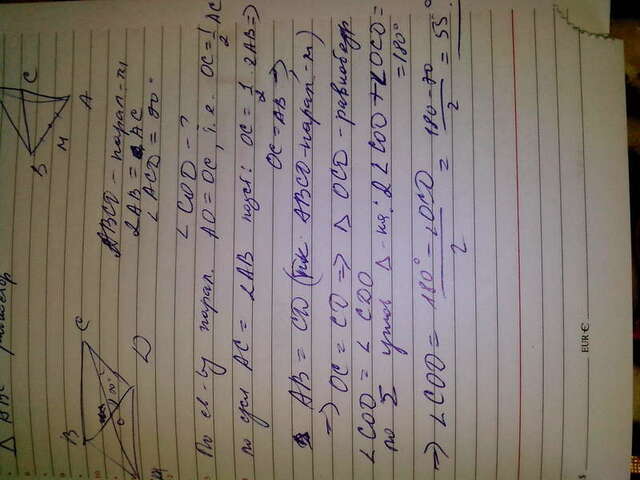 Δ ABC
B
C
M
A
B
C
O
70°
D
ABCD - парал-м
2AB = AC
∠ ACD = 70°
∠ COD - ?
По св-ву парал. AO = OC, т.е. OC = 1/2 AC
по усл AC = 2AB => OC = 1/2 · 2AB =>
OC = AB =>
AB = CD (т.к. ABCD - парал-м)
=> OC = CD => Δ OCD - равнобедр
∠ COD = ∠ CDO
по Σ углов Δ-ка: 2∠COD + ∠OCD =
= 180°
=> ∠COD = 180° - ∠OCD / 2 = 180 - 70 / 2 = 55°
EUR €